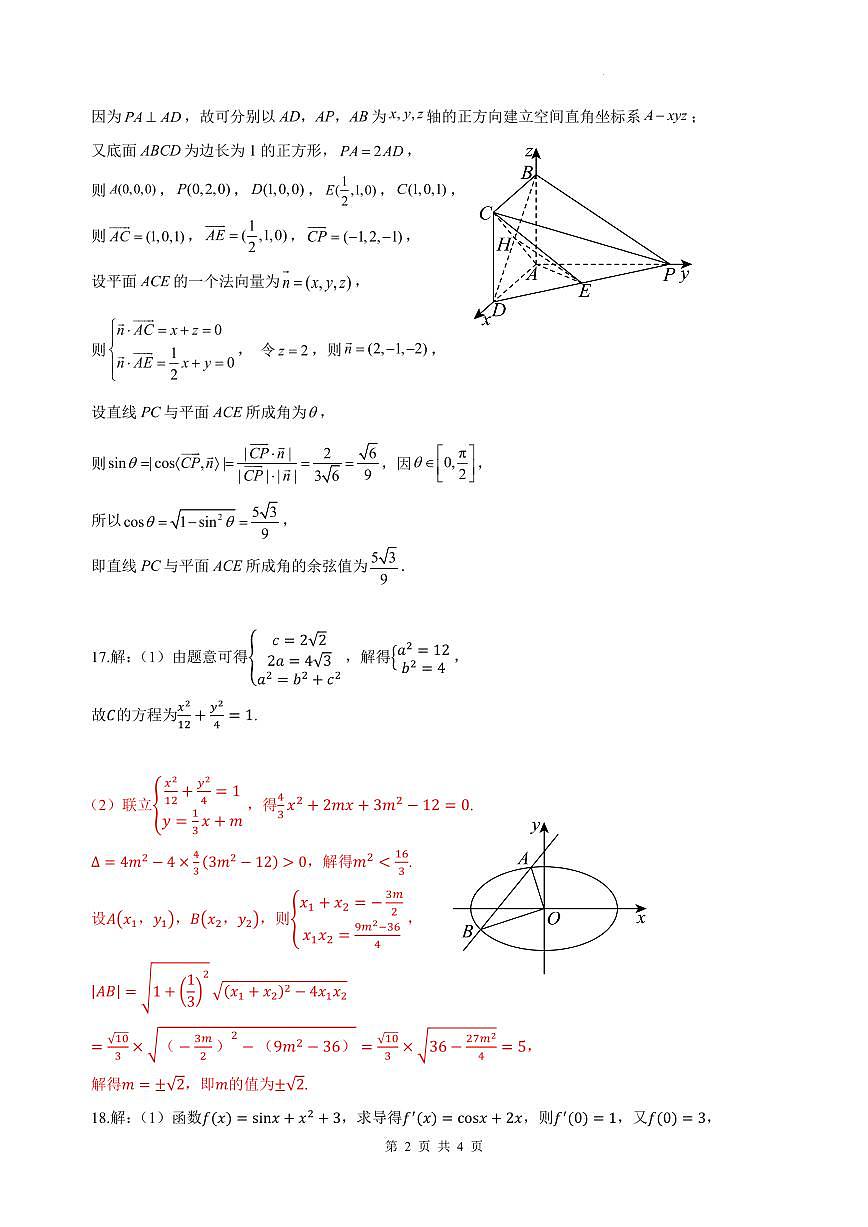 因为 PA ⊥ AD ，故可分别以 AD，AP，AB 为 x, y, z 轴的正方向建立空间直角坐标系 A − xyz ；
又底面 ABCD 为边长为 1 的正方形， PA = 2AD ，
则 A(0,0,0) ， P(0,2,0) ， D(1,0,0) ， E(1/2,1,0) ， C(1,0,1) ，
则 AC = (1,0,1) ， AE = (1/2,1,0) ， CP = (−1,2,−1) ，
设平面 ACE 的一个法向量为 n = (x, y, z) ，
则 { n · AC = x + z = 0
n · AE = 1/2 x + y = 0 ， 令 z = 2 ，则 n = (2,−1,−2) ，
z
B
C
H
A
P
y
E
D
x
设直线 PC 与平面 ACE 所成角为 θ ，
则 sin θ =| cos⟨CP, n⟩ |= |CP · n| / |CP| · |n| = 2/3√6 = √6/9 ，因 θ ∈ [0, π/2] ，
所以 cos θ = √(1 − sin² θ) = 5√3/9 ，
即直线 PC 与平面 ACE 所成角的余弦值为 5√3/9 .
17.解：（1）由题意可得 { c = 2√2
2a = 4√3
a² = b² + c² ，解得 { a² = 12
b² = 4 ，
故C的方程为 x²/12 + y²/4 = 1.
（2）联立 { x²/12 + y²/4 = 1
y = 1/3 x + m ，得 4/3 x² + 2mx + 3m² − 12 = 0.
Δ = 4m² − 4 × 4/3 (3m² − 12) > 0，解得m² < 16/3.
设A(x₁，y₁)，B(x₂，y₂)，则 { x₁ + x₂ = − 3m/2
x₁x₂ = 9m²−36/4 ，
y
A
B
O
x
|AB| = √(1 + (1/3)²) √((x₁ + x₂)² − 4x₁x₂)
= √10/3 × √(（− 3m/2）² − （9m² − 36）) = √10/3 × √(36 − 27m²/4) = 5，
解得m = ±√2，即m的值为±√2.
18.解：（1）函数f(x) = sinx + x² + 3，求导得f′(x) = cosx + 2x，则f′(0) = 1，又f(0) = 3，
第 2 页 共 4 页